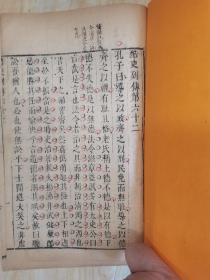 酷吏列傳第六十二
孔子曰導之以政齊之以刑民免而無恥導之以德
齊之以禮有恥且格老氏稱上德不德是以有德
下德不失德是以無德法令滋章盜賊多有太史公曰
信哉是言也法令者治之具而非制治清濁之源也
昔天下之網嘗密矣然姦偽萌起其極也上下相遁
至於不振當是之時吏治若救火揚沸非武健嚴酷
惡能勝其任而愉快乎言道德者溺其職矣故曰聽
訟吾猶人也必也使無訟乎下士聞道大笑之非虛也